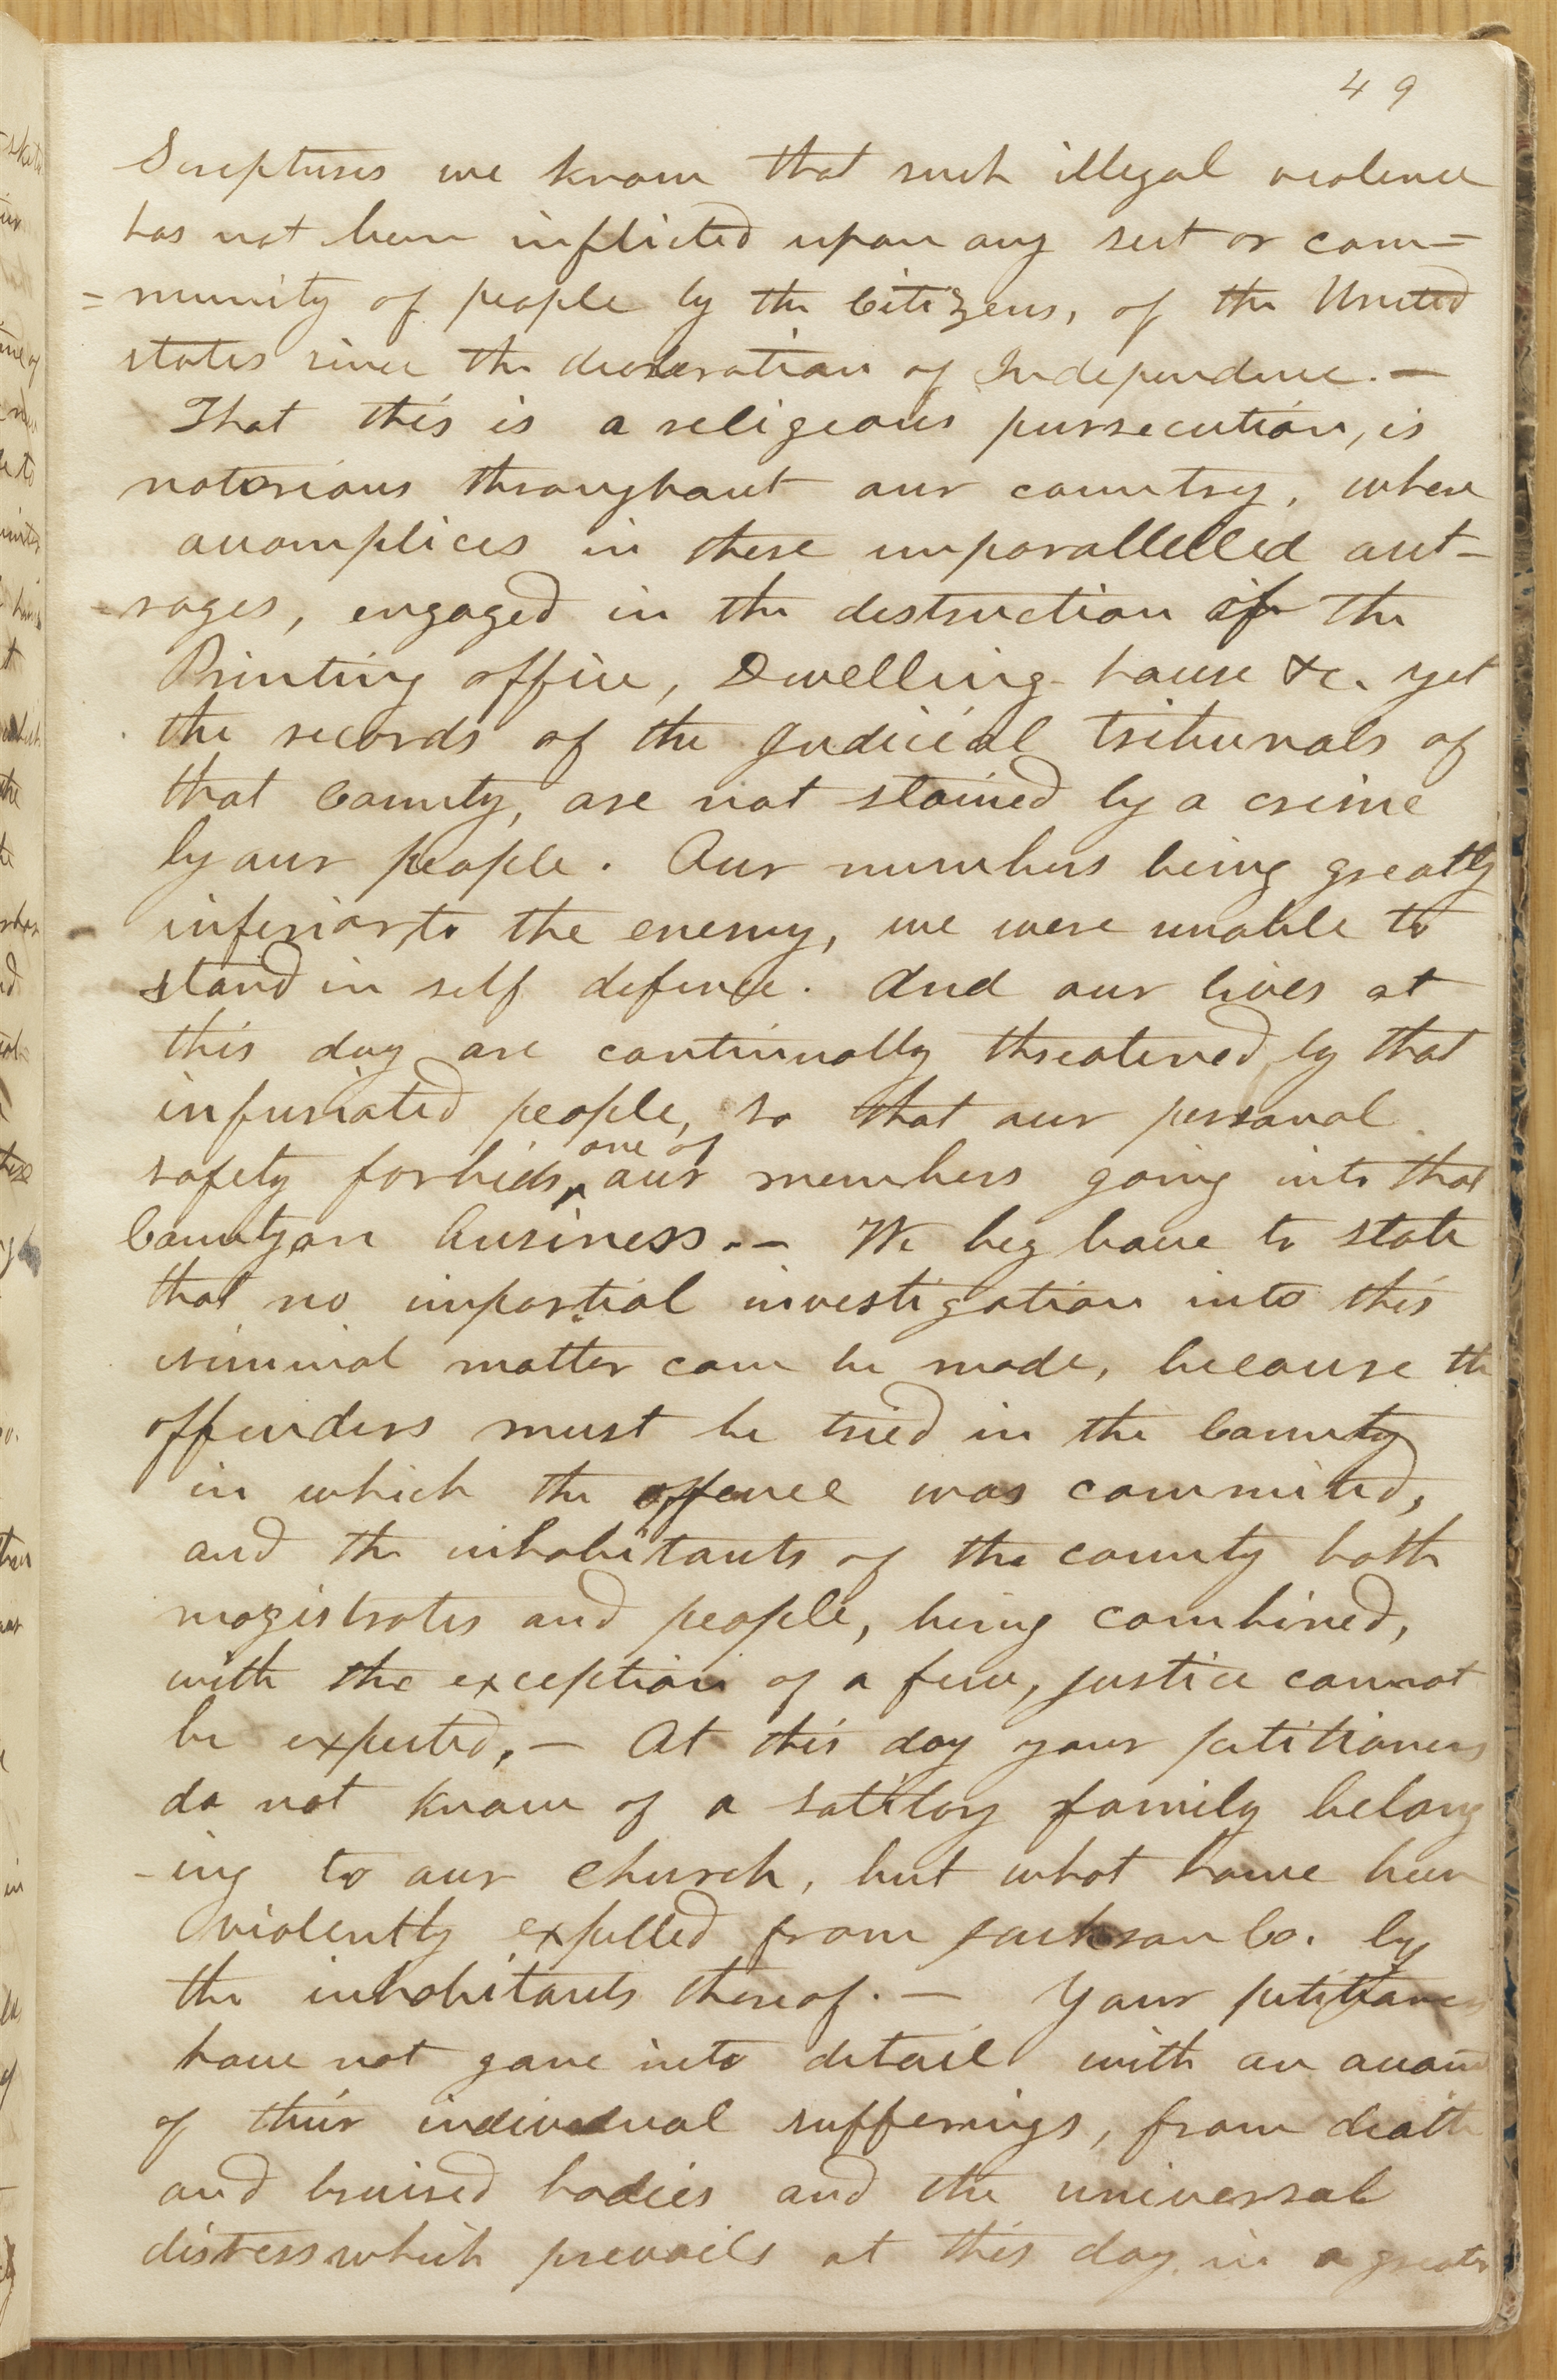 49
Scriptures we know that such illegal violence
has not been inflicted upon any sect or com=
=munity of people by the Citizens, of the United
states since the decleration of Independence. —
That this is a religeous pursecution, is
notorious throughout our country, where
accomplices in these unparallelled out-
-rages, engaged in the destruction of the
Printing office, Dwelling house &c. yet
the records of the Judicial tribunals of
that County, are not stained by a crime
by our people. Our numbers being greatly
inferior to the enemy, we were unable to
stand in self defence. And our lives at
this day are continually threatened by that
infuriated people, so that our personal
safety forbids, ^one of our members going into that
County on business. — We beg leave to state
that no impartial investigation into this
criminal matter can be made, because the
offenders must be tried in the County
in which the offence was commited,
and the inhabitants of the county both
magistrates and people, being combined,
with the exception of a few, justice cannot
be expected, — At this day your petitioners
do not know of a satitory family belong
-ing to our church, but what have been
violently expelled from Jackson Co. by
the inhabitants thereof. — Your petitioners
have not gone into detail with an account
of their individual sufferings, from death
and bruised bodies and the universal
distress which prevails at this day in a greater